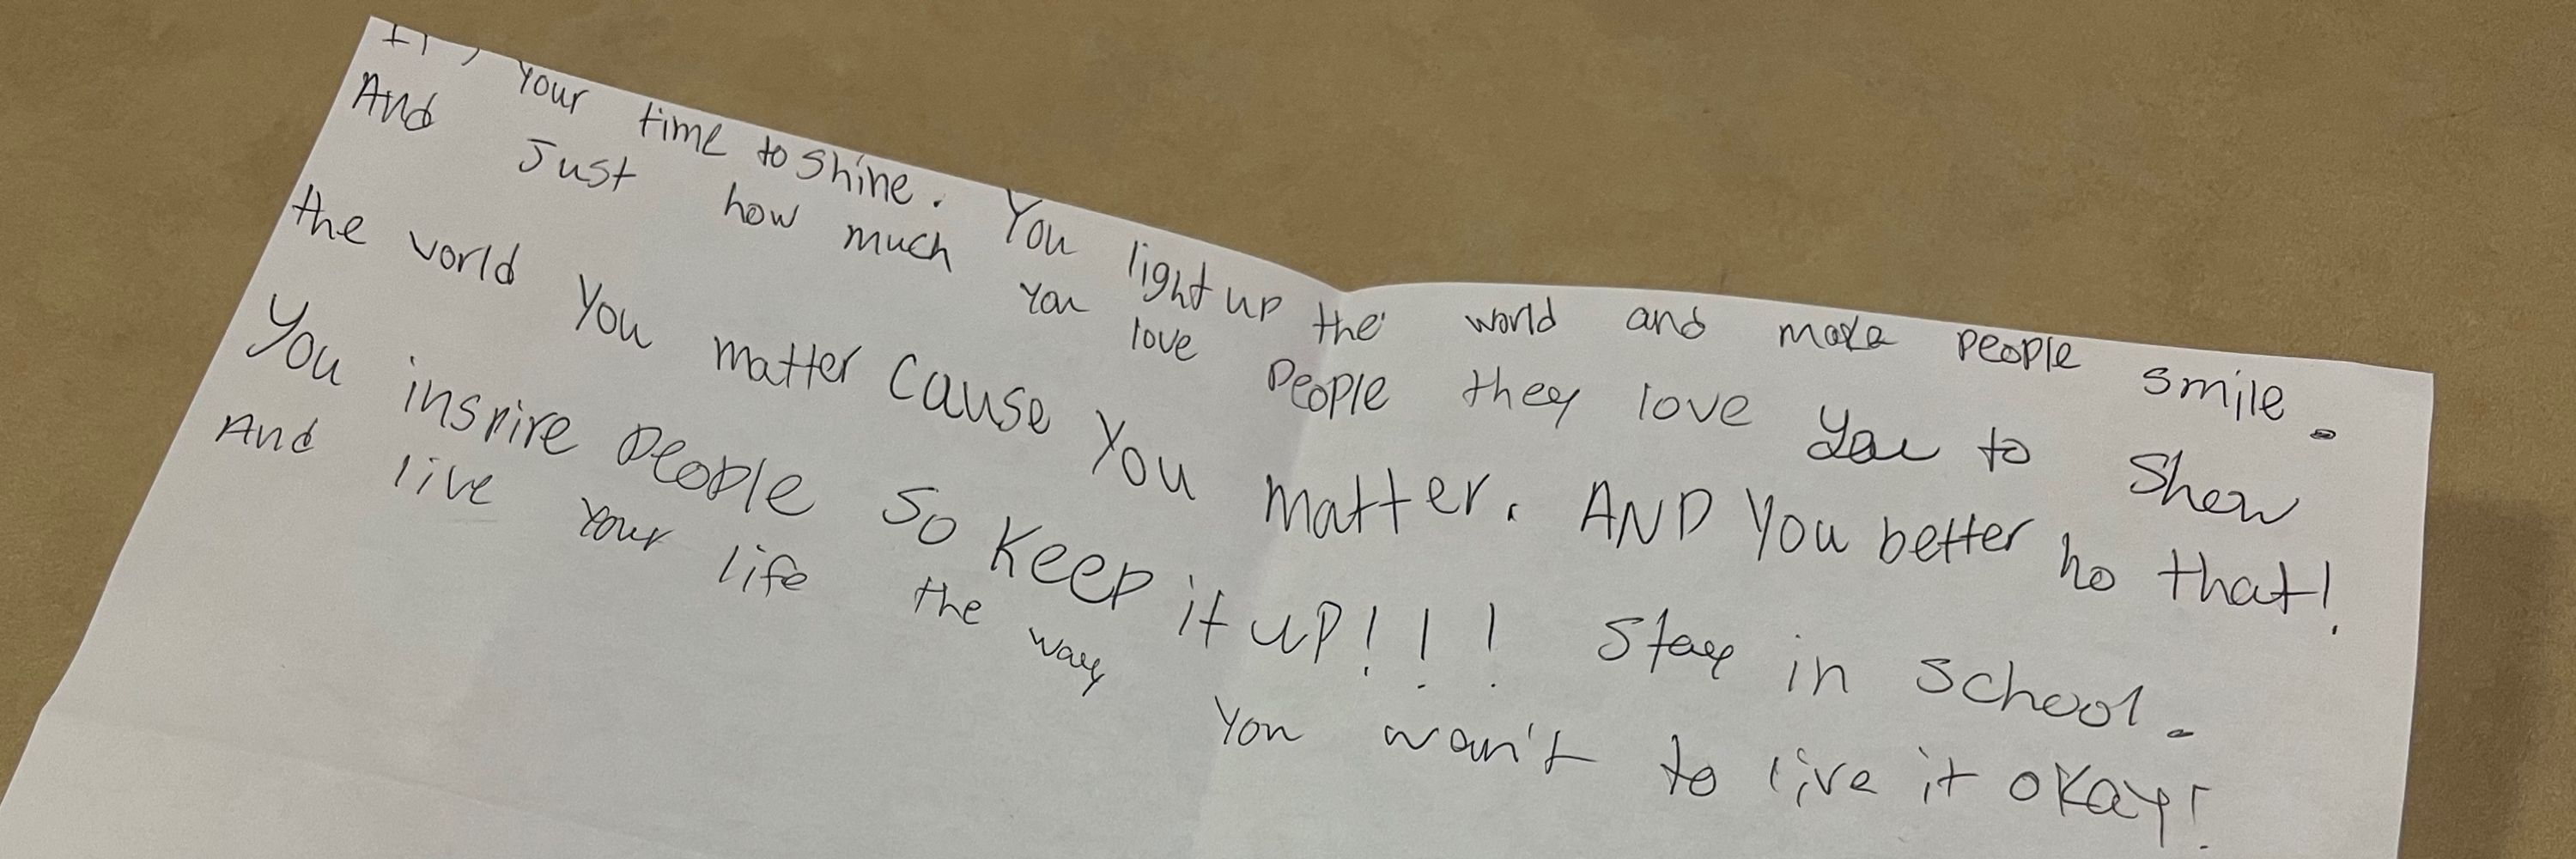 your time to shine. You light up the world and make people smile.
And Just how much you love people they love you to show
the world You matter cause You matter. AND You better ho that!
You inspire people so keep it up!!! Stay in school.
And live your life the way you wan't to live it okay!